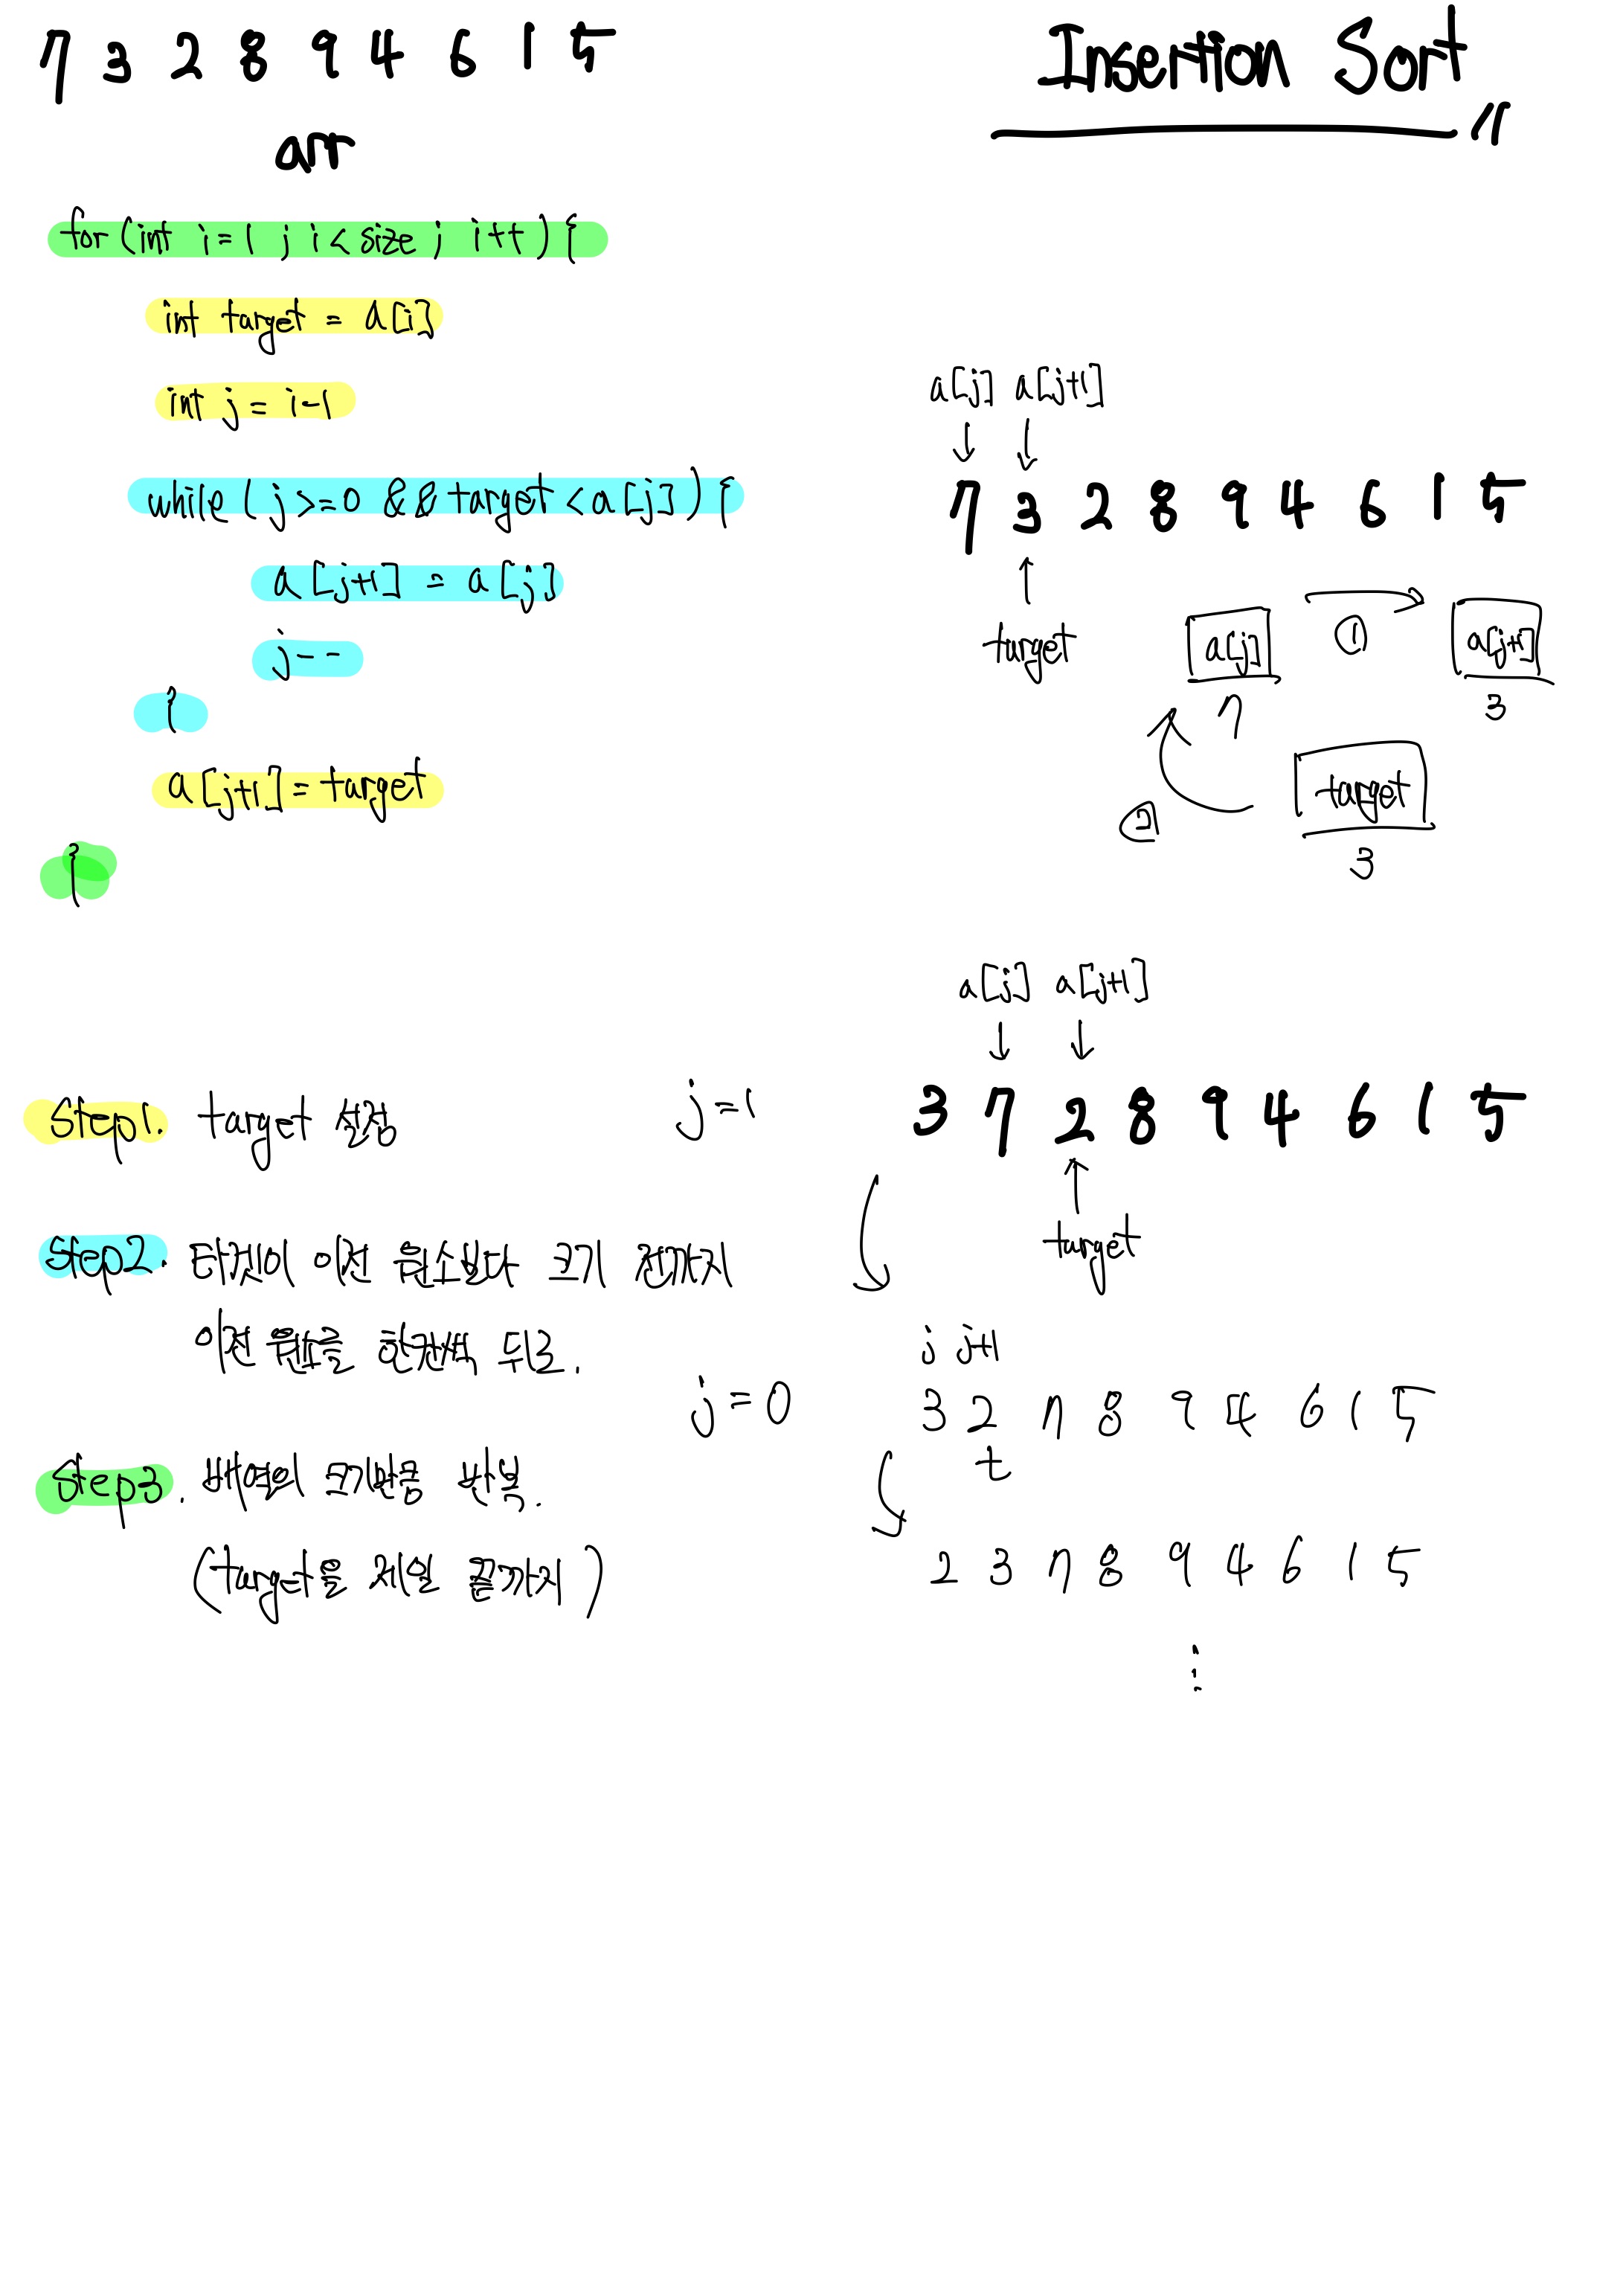 7 3 2 8 9 4 6 1 5
arr
Insertion Sort
for (int i = 1 ; i < size ; i++) {
int target = a[i]
int j = i-1
while ( j >= 0 && target < a[j] ) {
a[j+1] = a[j]
j--
}
a[j+1] = target
}
a[j] a[j+1]
7 3 2 8 9 4 6 1 5
target
a[j] ① a[j+1]
7 3
② target
3
Step1. target 설정
Step2. 타겟이 이전 원소보다 크기 전까지
이전 원소를 한칸씩 뒤로.
Step3. 배열의 크기만큼 반복.
(target을 제일 끝까지)
a[j] a[j+1]
j=1 3 7 2 8 9 4 6 1 5
target
j j+1
j=0 3 2 7 8 9 4 6 1 5
t
2 3 7 8 9 4 6 1 5
⋮